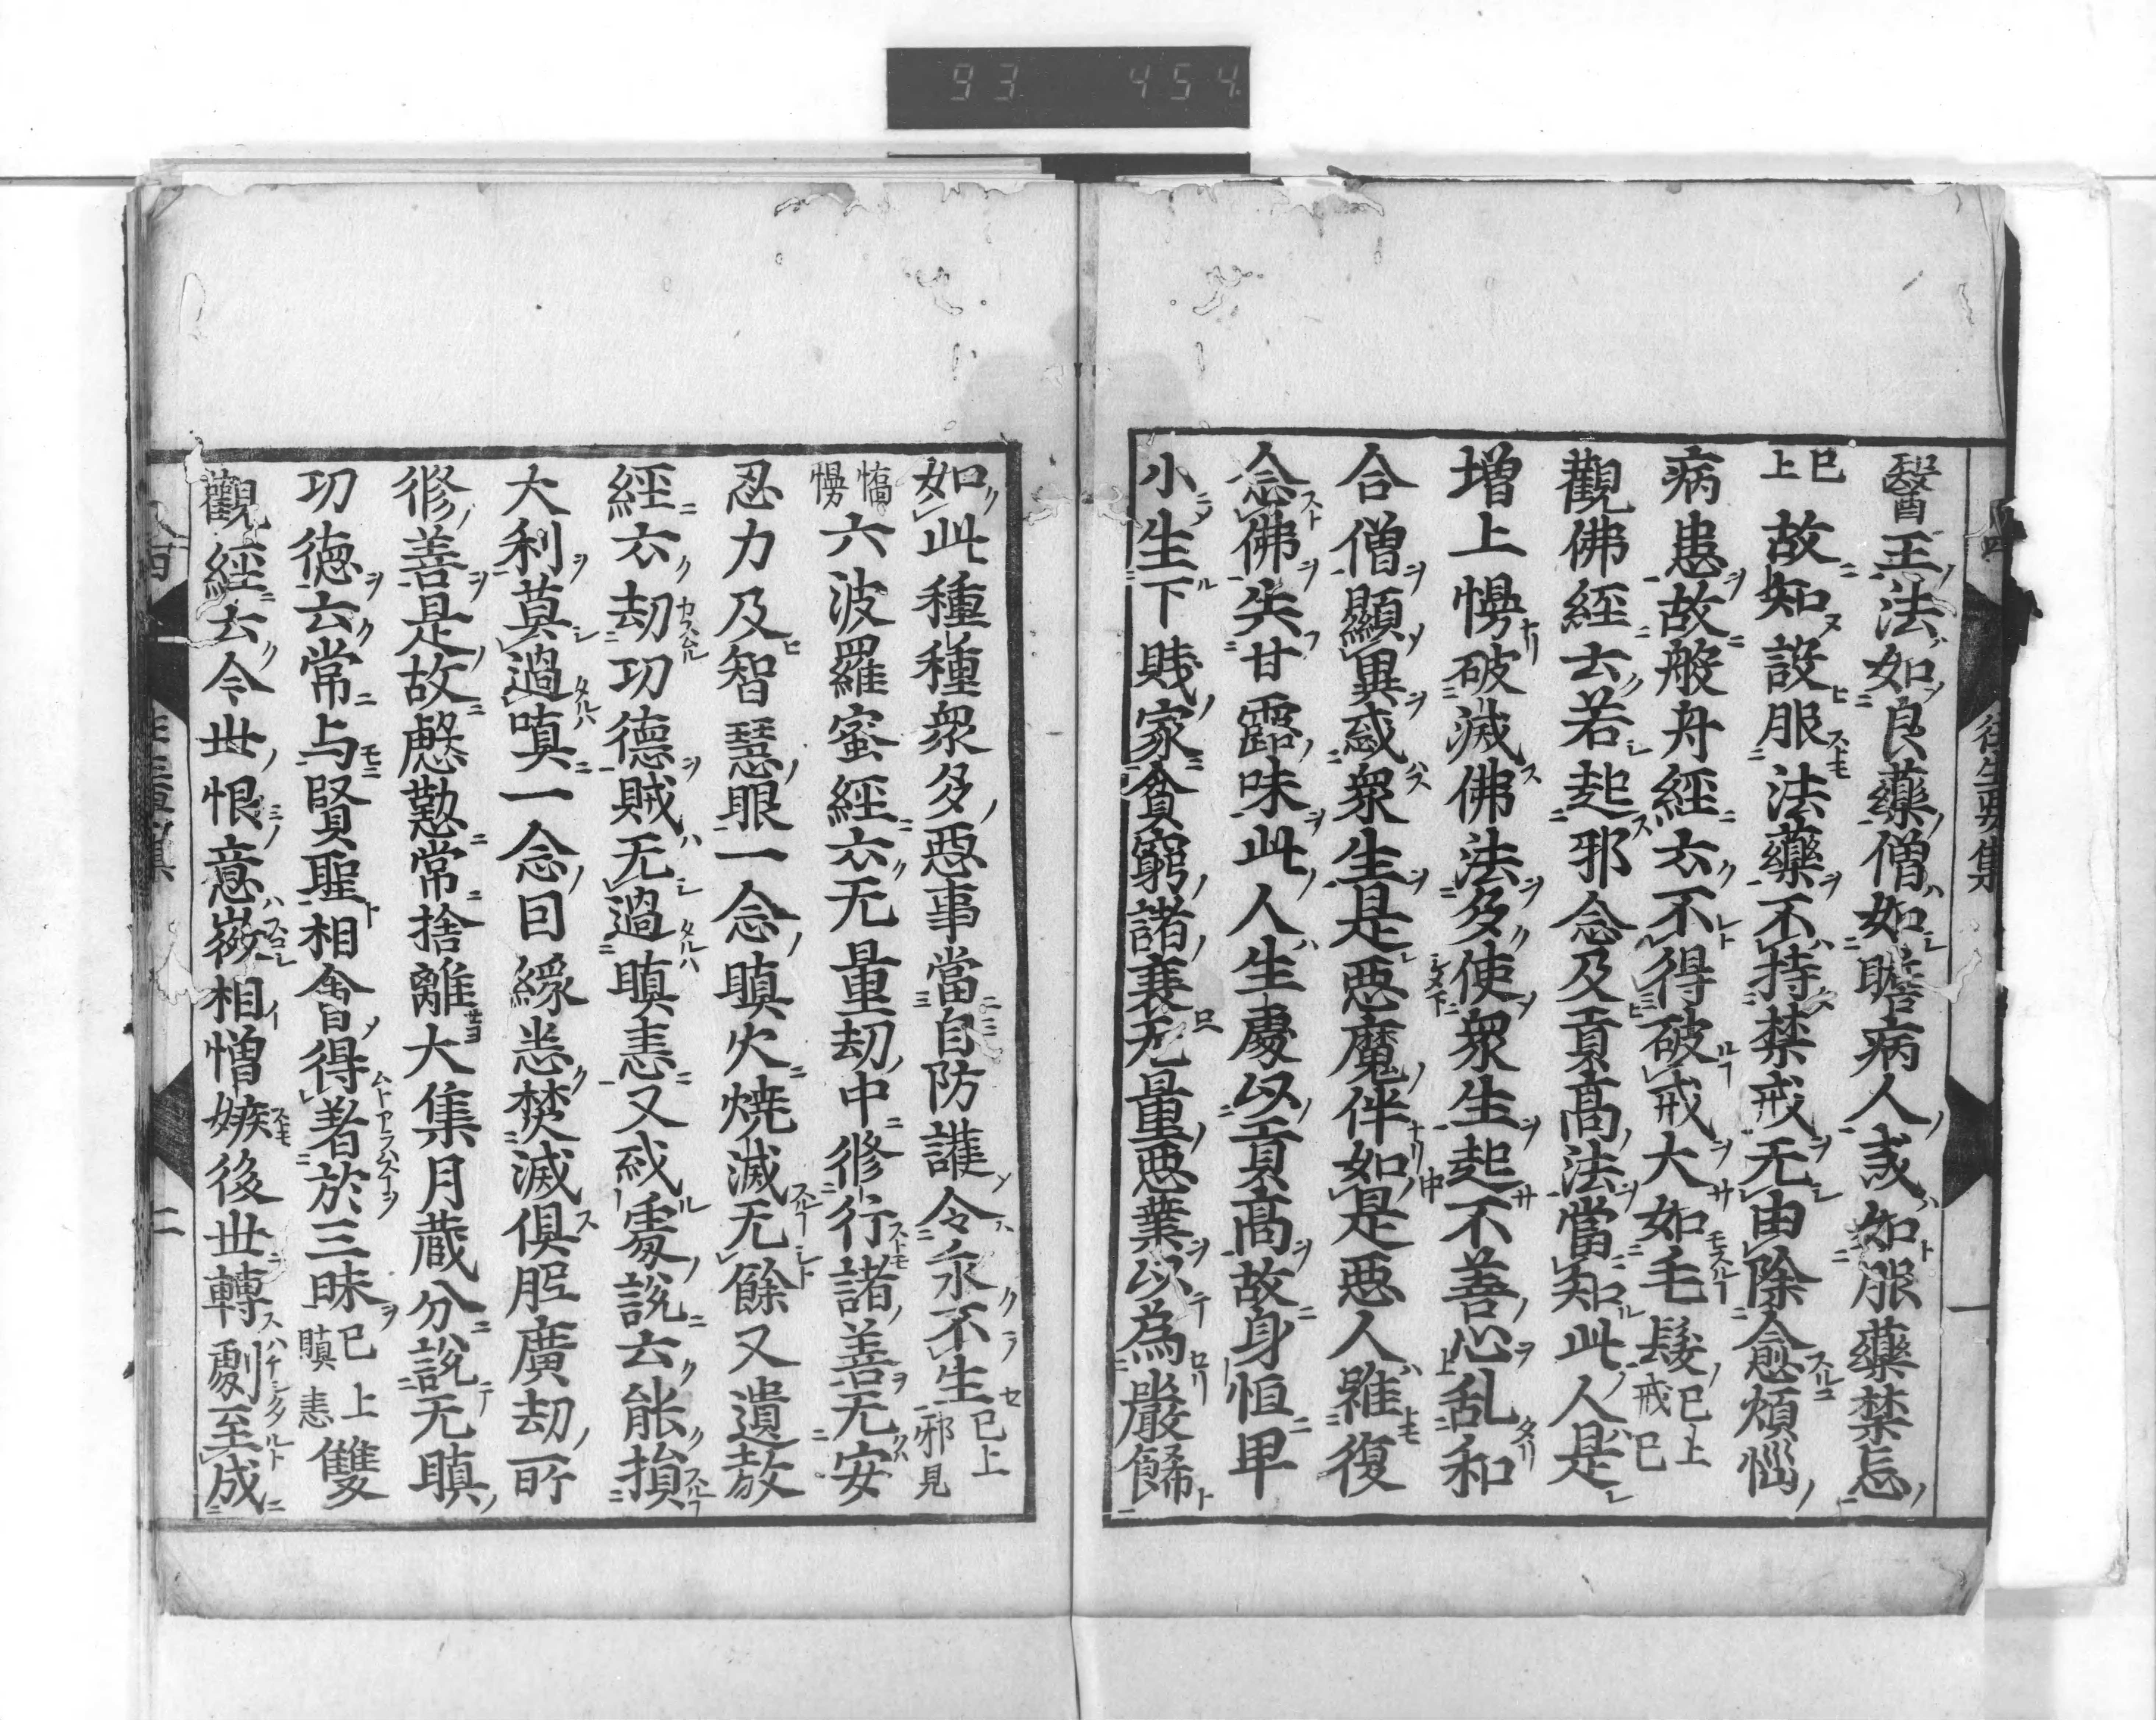 93 454
往生要集
醫王法如良藥僧如瞻病人戒如服藥禁忌
已上故知設服法藥不持禁戒无由除愈煩惱
病患故般舟經云不得破戒大如毛髮已上戒已
觀佛經云若起邪念及貢高法當知此人是
增上慢破滅佛法多使眾生起不善心乱和
合僧顯異惑眾生是惡魔伴如是惡人雖復
念佛失甘露味此人生處以貢高故身恒卑
小生下賤家貧窮諸衰无量惡業以為嚴餝
一
如此種種眾多惡事當自防護令永不生已上邪見
憍慢六波羅蜜經云无量劫中修行諸善无安
忍力及智慧眼一念瞋火燒滅无餘又遺教
經云劫功德賊无過瞋恚又或處說云能損
大利莫過嗔一念因緣悉焚滅俱胝廣劫所
修善是故慇懃常捨離大集月蔵分說无瞋
功德云常与賢聖相會得著於三昧已上瞋恚雙
觀經云今世恨意微相憎嫉後世轉劇至成
二